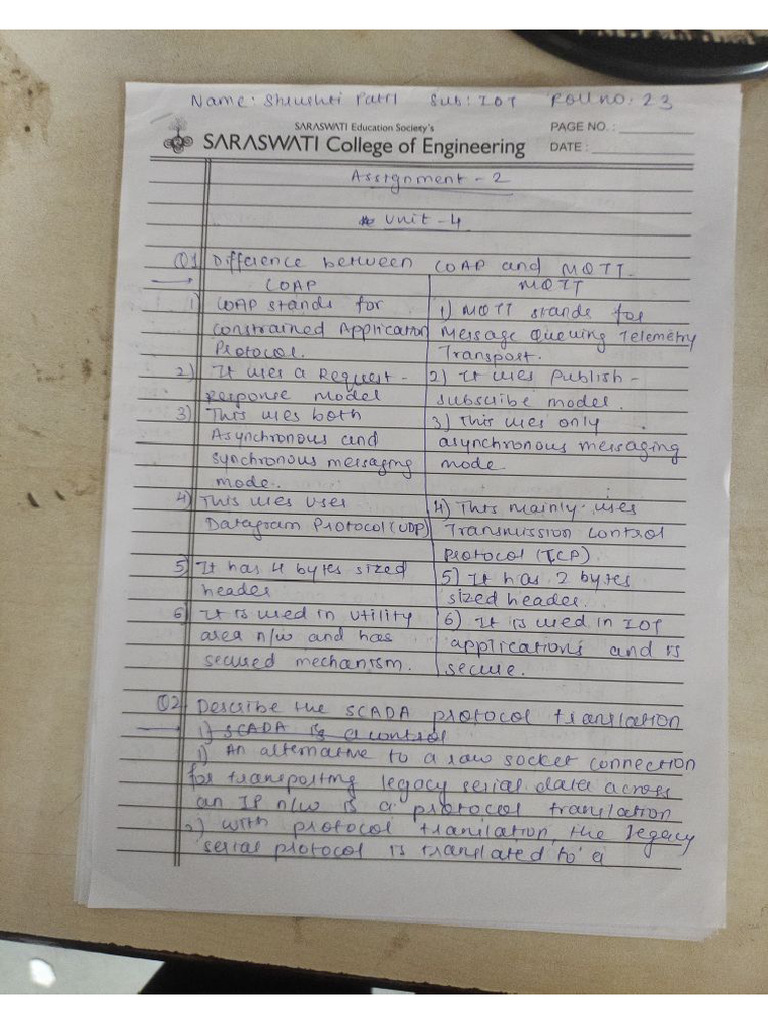 Name: Shrushti Patil Sub: IOT Roll no: 23
SARASWATI Education Society's
SARASWATI College of Engineering
PAGE NO. :
DATE :
Assignment - 2
Unit - 4
Q1 Difference between COAP and MQTT.
COAP
1) COAP stands for
constrained Application
Protocol.
2) It uses a Request -
Response Model
3) This uses both
Asynchronous and
synchronous messaging
mode.
4) This uses User
Datagram Protocol (UDP)
5) It has 4 bytes sized
header
6) It is used in utility
area n/w and has
secured mechanism.
MQTT
1) MQTT stands for
Message Queuing Telemetry
Transport.
2) It uses Publish -
subscribe model.
3) This uses only
asynchronous messaging
mode.
4) This mainly uses
Transmission control
protocol (TCP).
5) It has 2 bytes
sized header.
6) It is used in IOT
applications and is
secure.
Q2 Describe the SCADA protocol translation
1) SCADA is a control
1) An alternative to a raw socket connection
for transporting legacy serial data across
an IP n/w is a protocol translation
2) With protocol translation, the legacy
serial protocol is translated to a